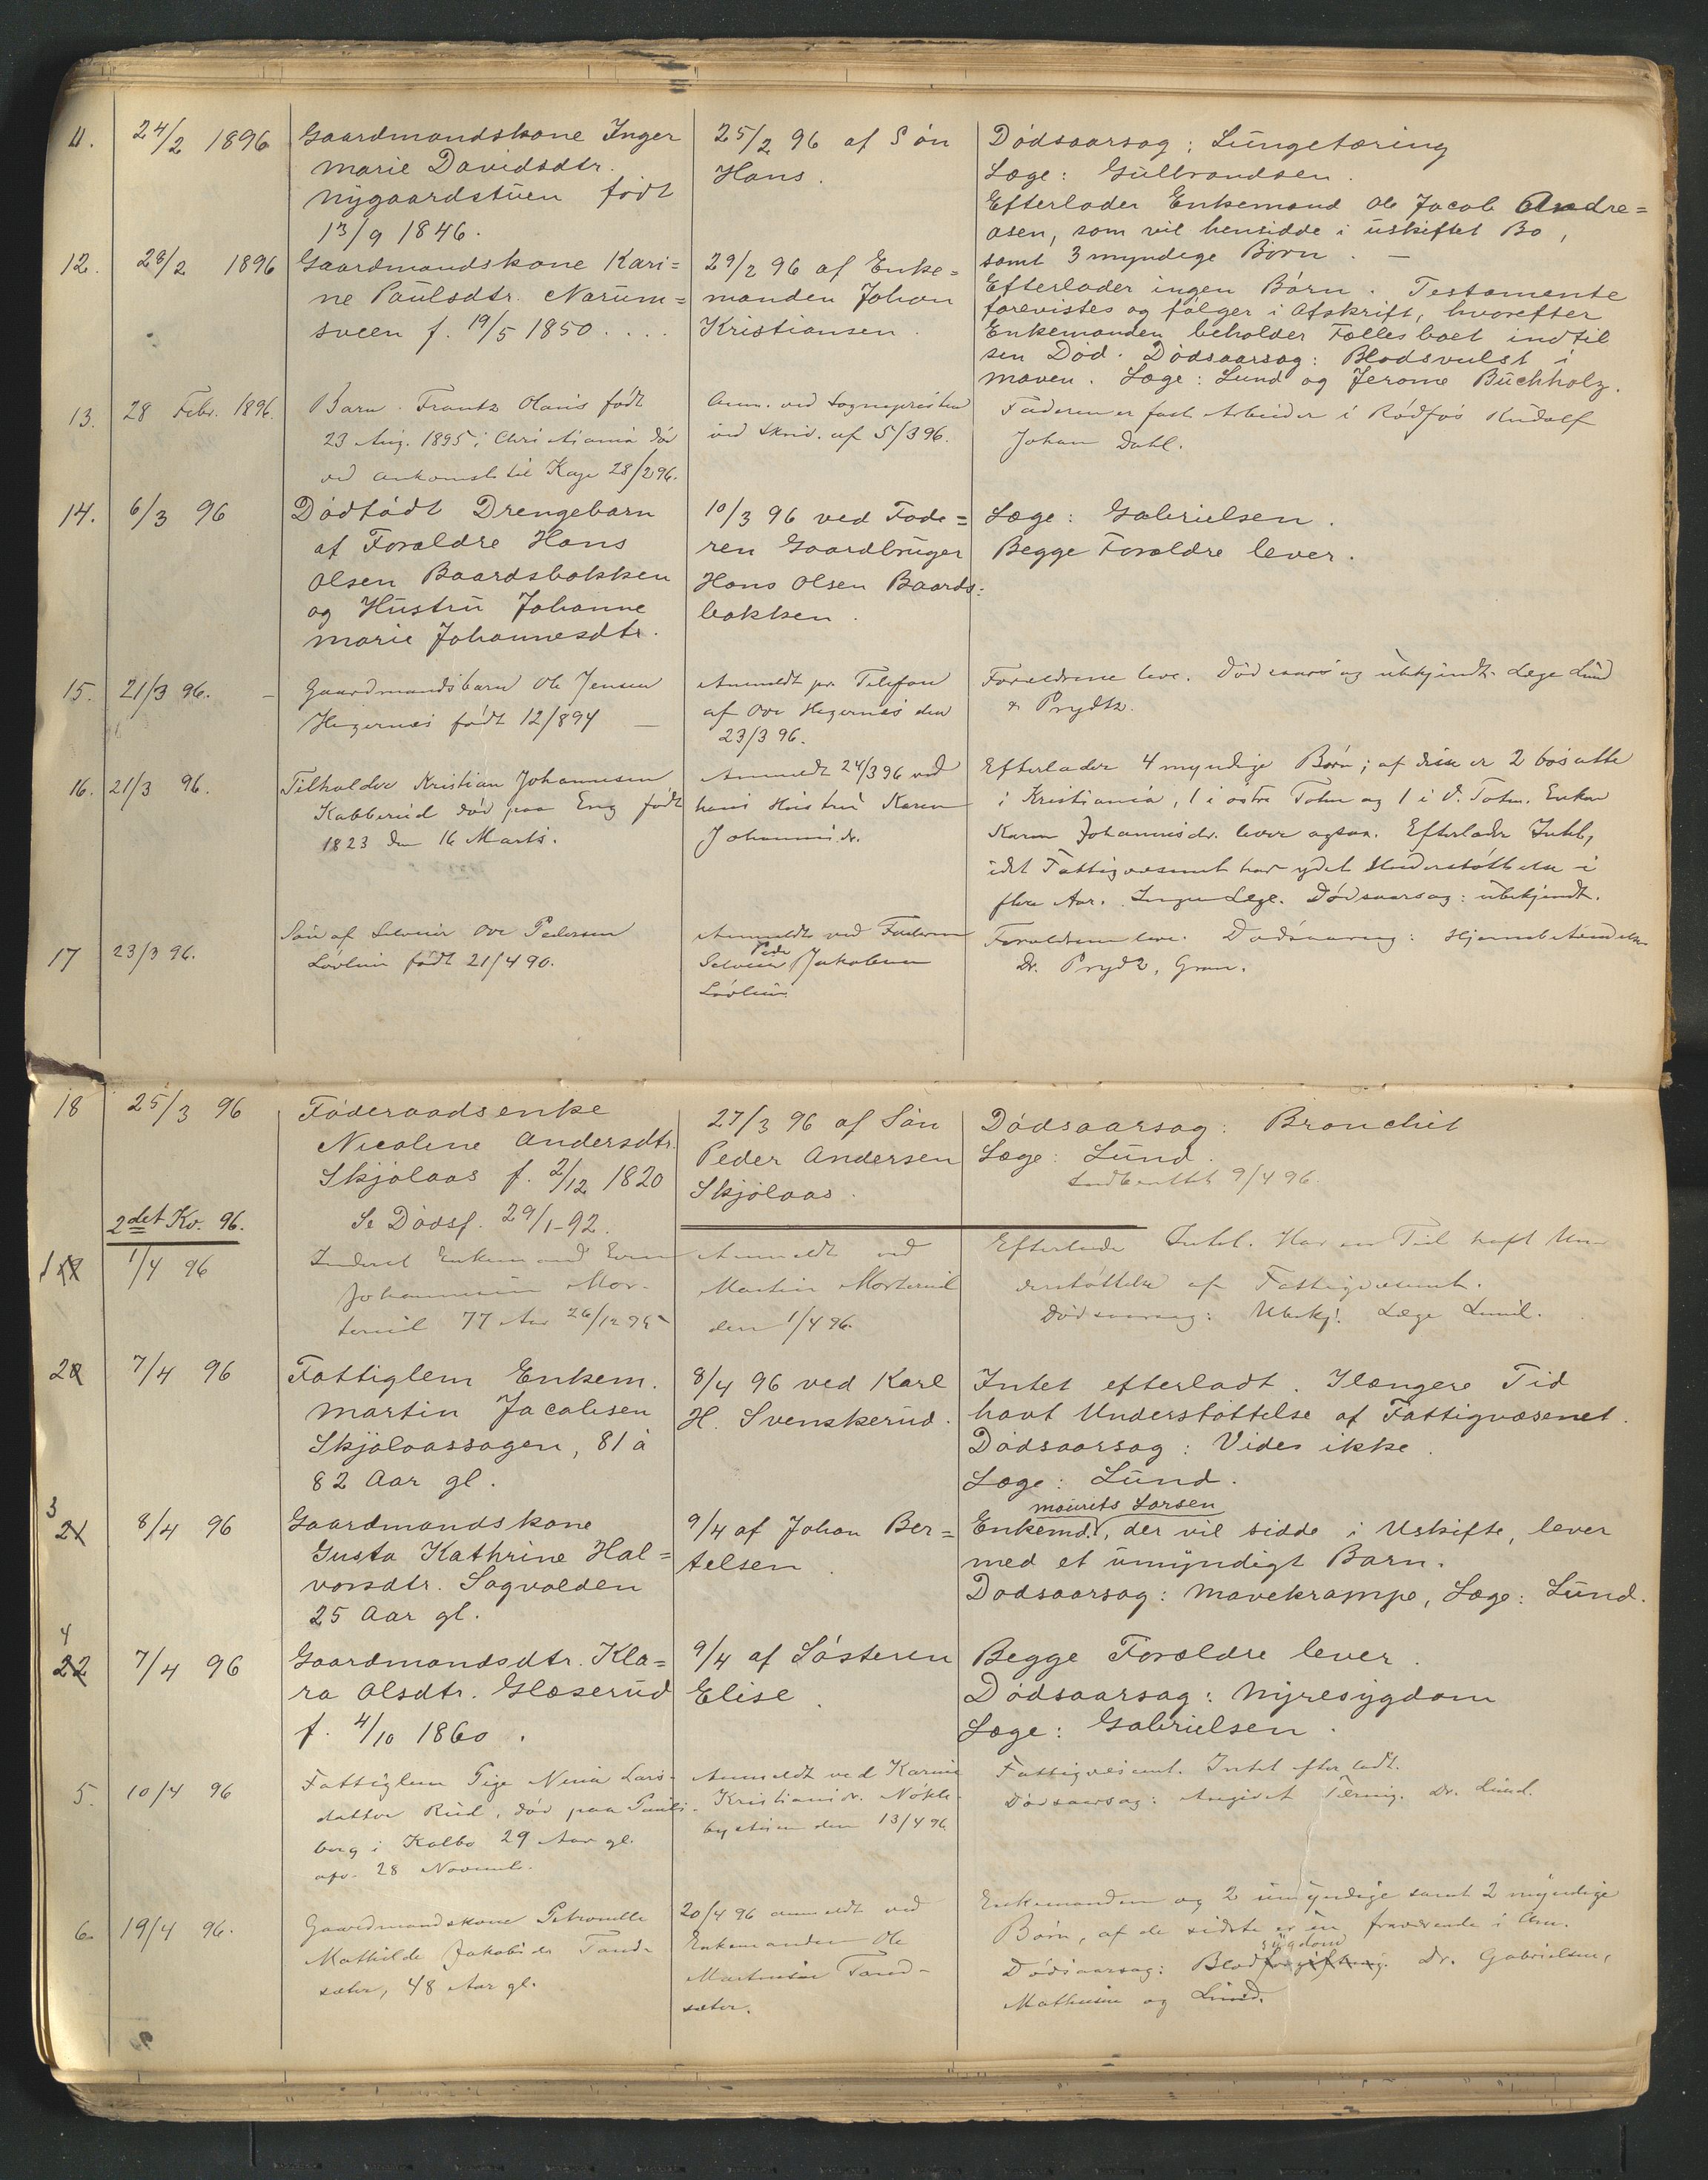 11.
24/2 1896
Gaardmandskone Inger
Marie Davidsdtr.
Nygaardstuen født
13/9 1846.
25/2 96 af Søn
Hans.
Dødsaarsag: Lungetæring
Læge: Gulbrandsen.
Efterlader Enkemand Ole Jacob Andre=
asen, som vil hensidde i uskiftet Bo,
samt 3 myndige Børn. —
12.
28/2 1896
Gaardmandskone Kari=
ne Paulsdtr. Narum=
sveen f. 19/5 1850 . . . .
29/2 96 af Enke=
manden Johan
Kristiansen.
Efterlader ingen Børn. Testamente
forevistes og følger i Afskrift, hvorefter
Enkemanden beholder Fællesboet indtil
sin Død. Dødsaarsag: Blodsvulst i
Maven. Læge: Lund og Jerome Buchholz.
13.
28 Febr. 1896.
Barn Frantz Olaus født
23 Aug. 1895 i Christiania død
ved Ankomst til Kap 28/2 96.
Anm. ved Sognepresten
ved Skriv. af 5/3 96.
Faderen er fast Arbeider i Rødfos Rudolf
Johan Dahl.
14.
6/3 96
Dødfødt Drengebarn
af Forældre Hans
Olsen Baardsbakken
og Hustru Johanne
Marie Johannesdtr.
10/3 96 ved Fade=
ren Gaardbruger
Hans Olsen Baards=
bakken.
Læge: Gabrielsen.
Begge Forældre lever.
15.
21/3 96. —
Gaardmandsbarn Ole Jensen
Hegernes født 12/8 94 —
Anmeldt pr. Telefon
af Ove Hegernes den
23/3 96.
Forældrene leve. Dødsaarsag ubekjendt. Læge Lund
& Prydtz.
16.
21/3 96.
Tilholder Kristian Johannesen
Kabberud død paa Eng født
1823 den 16 Marts.
Anmeldt 24/3 96 ved
hans Hustru Karen
Johannesdr.
Efterlader 4 myndige Børn; af disse er 2 bosatte
i Kristiania, 1 i østre Toten og 1 i V. Toten. Enken
Karen Johannesdr. lever ogsaa. Efterlader Intet,
idet Fattigvæsenet har ydet Understøttelse i
flere Aar. Ingen Læge. Dødsaarsag: ubekjendt.
17
23/3 96.
Søn af Selveier Ove Pedersen
Løvlien født 21/4 90.
Anmeldt ved Faderen
Peder
Selveier Jakobsen
Løvlien
Forældrene leve. Dødsaarsag: Hjernebetændelse
Dr. Prydz, Gran.
18
25/3 96
Føderaadsenke
Nicoline Andersdtr.
Skjølaas f. 2/12 1820
Se Dødsf. 29/1-92.
27/3 96 af Søn
Peder Andersen
Skjølaas.
Dødsaarsag: Bronchit
Læge: Lund.
Indberettet 9/4 96.
2det Kv. 96.
1
1/4 96
Inderst Enkemand Even
Johannesen Mor-
terud 77 Aar 26/12 95
Anmeldt ved
Martin Morterud
den 1/4 96.
Efterlade Intet. Har en Tid haft Un
derstøttelse af Fattigvæsenet.
Dødsaarsag: Ubekj. Læge Lund.
2
7/4 96
Fattiglem Enkem.
Martin Jacobsen
Skjølaassagen, 81 à
82 Aar gl.
8/4 96 ved Karl
H. Svenskerud.
Intet efterladt. I længere Tid
havt Understøttelse af Fattigvæsenet.
Dødsaarsag: Vides ikke.
Læge: Lund.
3
21
8/4 96
Gaardmandskone
Gusta Kathrine Hal=
vorsdtr. Sagvolden
25 Aar gl.
9/4 af Johan Ber=
telsen.
Mauritz Larsen
Enkemd., der vil sidde i Uskifte, lever
med et umyndigt Barn.
Dødsaarsag: Mavekrampe, Læge: Lund.
4
22
7/4 96
Gaardmandsdtr. Kla=
ra Olsdtr. Glæserud
f. 4/10 1860.
9/4 af Søsteren
Elise.
Begge Forældre lever.
Dødsaarsag: Nyresygdom
Læge: Gabrielsen.
5.
10/4 96
Fattiglem Pige Nina Lars-
datter Rud, død paa Pauls-
borg i Kolbo 29 Aar gl.
28 Novemb.
Anmeldt ved Karine
Kristiansdr. Nøkle-
bystuen den 13/4 96
Fattigvæsenet. Intet efterladt.
Dødsaarsag: Angivet Tæring. Dr. Lund.
6.
19/4 96.
Gaardmandskone Petronelle
Mathilde Jakobsdr Tand-
sæter, 48 Aar gl.
20/4 96 anmeldt ved
Enkemanden Ole
Martinsen Tand-
sæter.
Enkemanden og 2 umyndige samt 2 myndige
Børn, af de sidste er en fraværende i Am.
sygdom
Dødsaarsag: Blodforgiftning. Dr. Gabrielsen,
Mathiesen og Lund.